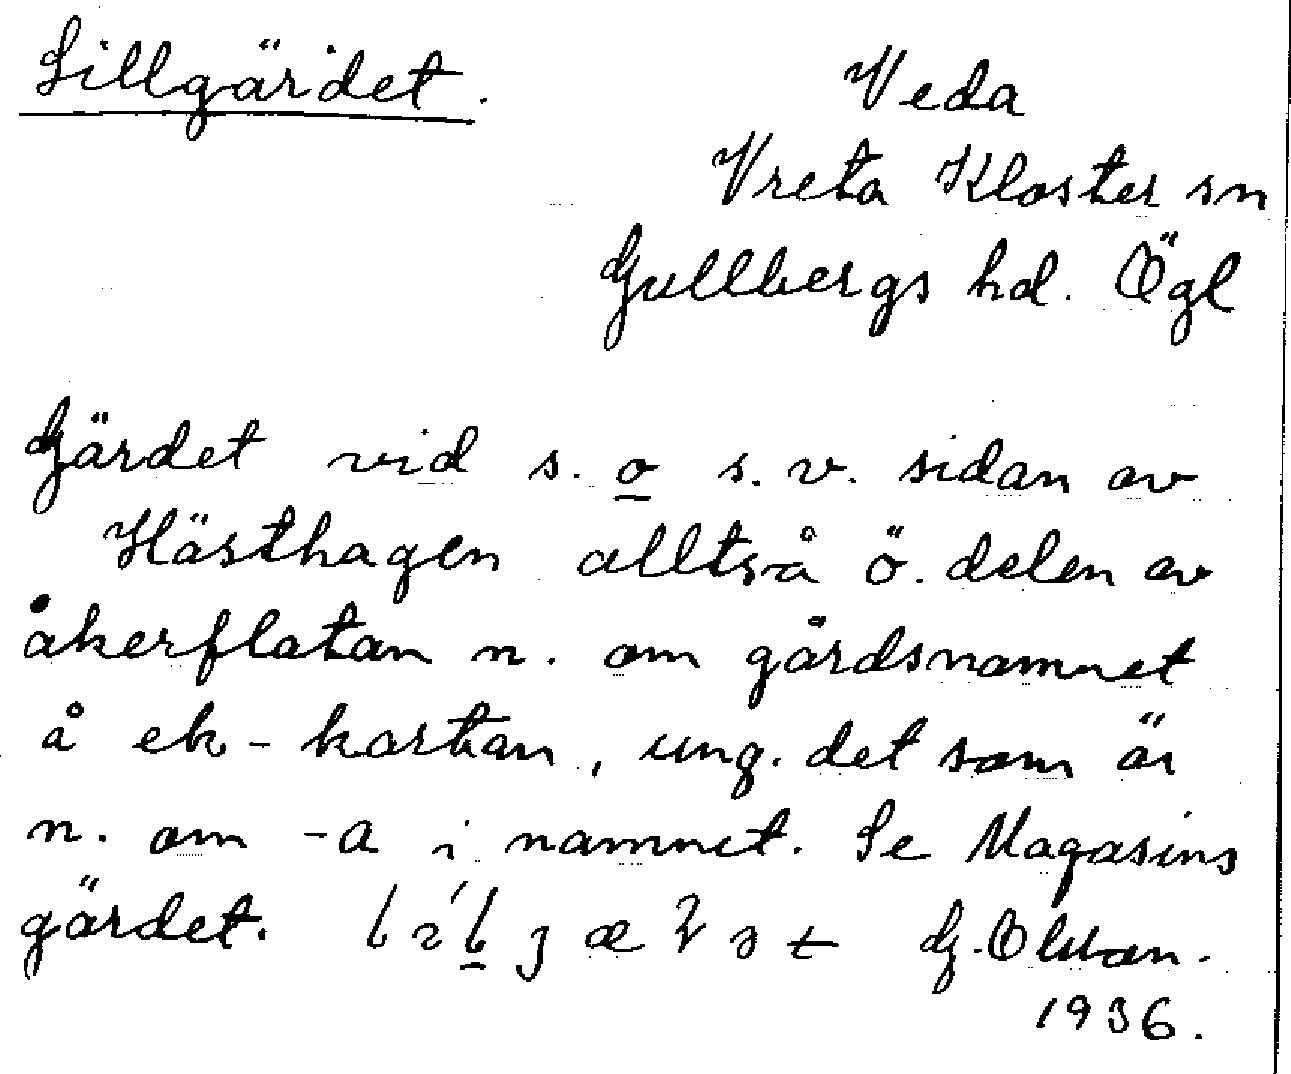 Lillgärdet.
Veda
Vreta Kloster sn
Gullbergs hd. Ögl
Gärdet vid s. o s.v. sidan av
Hästhagen alltså ö. delen av
åkerflatan n. om gårdsnamnet
å ek-kartan, ung. det som är
n. om -a i namnet. Se Magasins
gärdet. G. Olson.
1936.